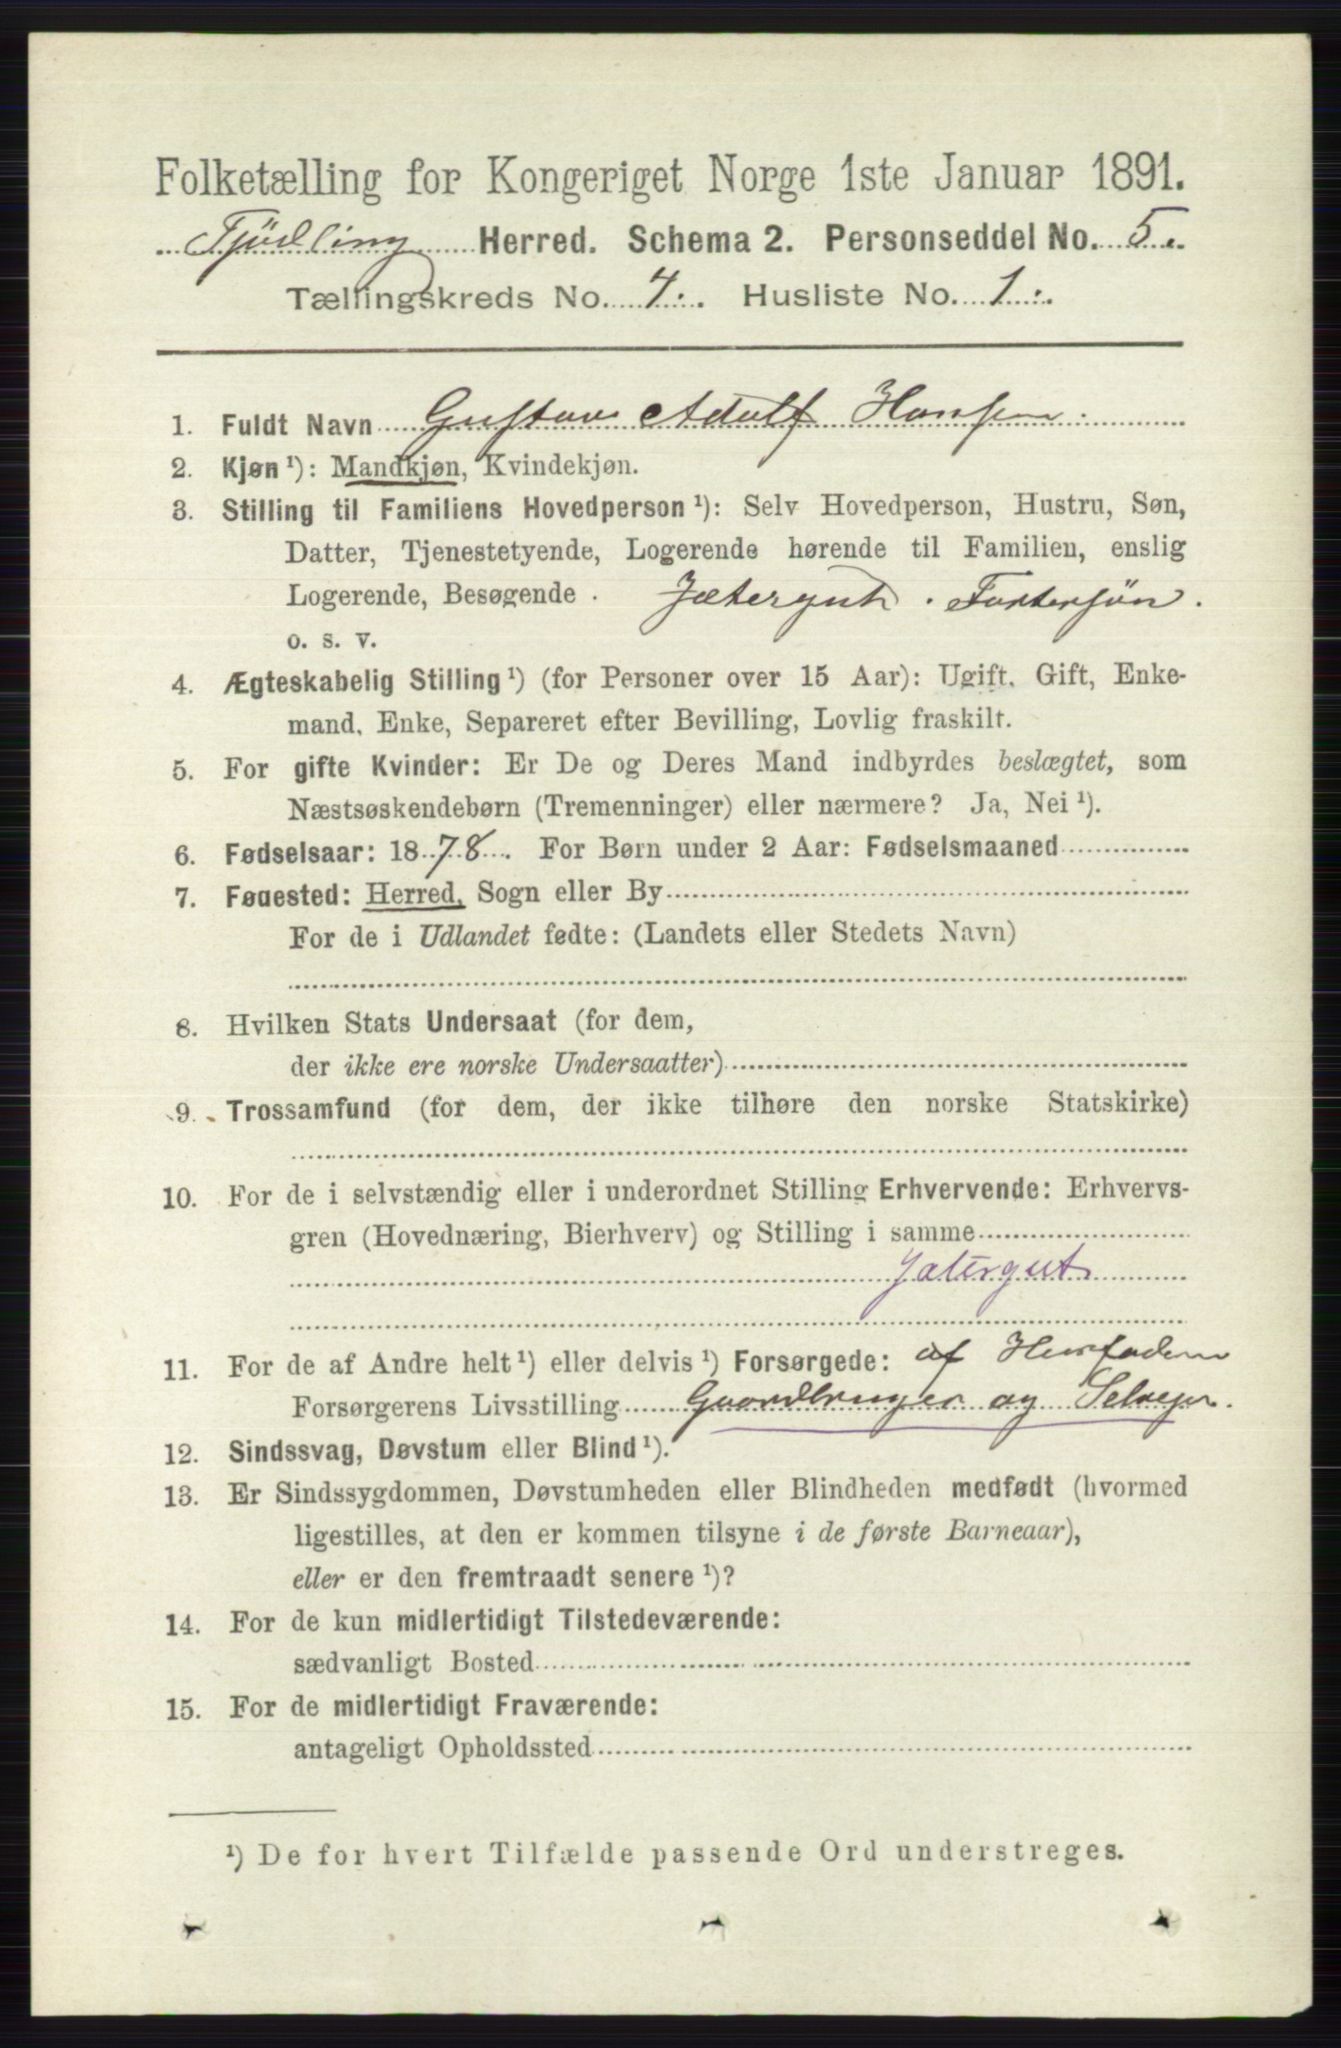 Folketælling for Kongeriget Norge 1ste Januar 1891.
Tjødling Herred. Schema 2. Personseddel No. 5.
Tællingskreds No. 4. Husliste No. 1.
1. Fuldt Navn Gustav Adolf Hansen.
2. Kjøn¹): Mandkjøn, Kvindekjøn.
3. Stilling til Familiens Hovedperson¹): Selv Hovedperson, Hustru, Søn,
Datter, Tjenestetyende, Logerende hørende til Familien, enslig
Logerende, Besøgende . Jætergut. Fostersøn.
o. s. v.
4. Ægteskabelig Stilling¹) (for Personer over 15 Aar): Ugift. Gift, Enke-
mand, Enke, Separeret efter Bevilling, Lovlig fraskilt.
5. For gifte Kvinder: Er De og Deres Mand indbyrdes beslægtet, som
Næstsøskendebørn (Tremenninger) eller nærmere? Ja, Nei¹).
6. Fødselsaar: 1878. For Børn under 2 Aar: Fødselsmaaned
7. Fødested: Herred, Sogn eller By
For de i Udlandet fødte: (Landets eller Stedets Navn)
8. Hvilken Stats Undersaat (for dem,
der ikke ere norske Undersaatter)
9. Trossamfund (for dem, der ikke tilhøre den norske Statskirke)
10. For de i selvstændig eller i underordnet Stilling Erhvervende: Erhvervs-
gren (Hovednæring, Bierhverv) og Stilling i samme
Jætergut
11. For de af Andre helt¹) eller delvis¹) Forsørgede: af Husfaderen
Forsørgerens Livsstilling Gaardbruger og Selveier.
12. Sindssvag, Døvstum eller Blind¹).
13. Er Sindssygdommen, Døvstumheden eller Blindheden medfødt (hvormed
ligestilles, at den er kommen tilsyne i de første Barneaar),
eller er den fremtraadt senere¹)?
14. For de kun midlertidigt Tilstedeværende:
sædvanligt Bosted
15. For de midlertidigt Fraværende:
antageligt Opholdssted
¹) De for hvert Tilfælde passende Ord understreges.